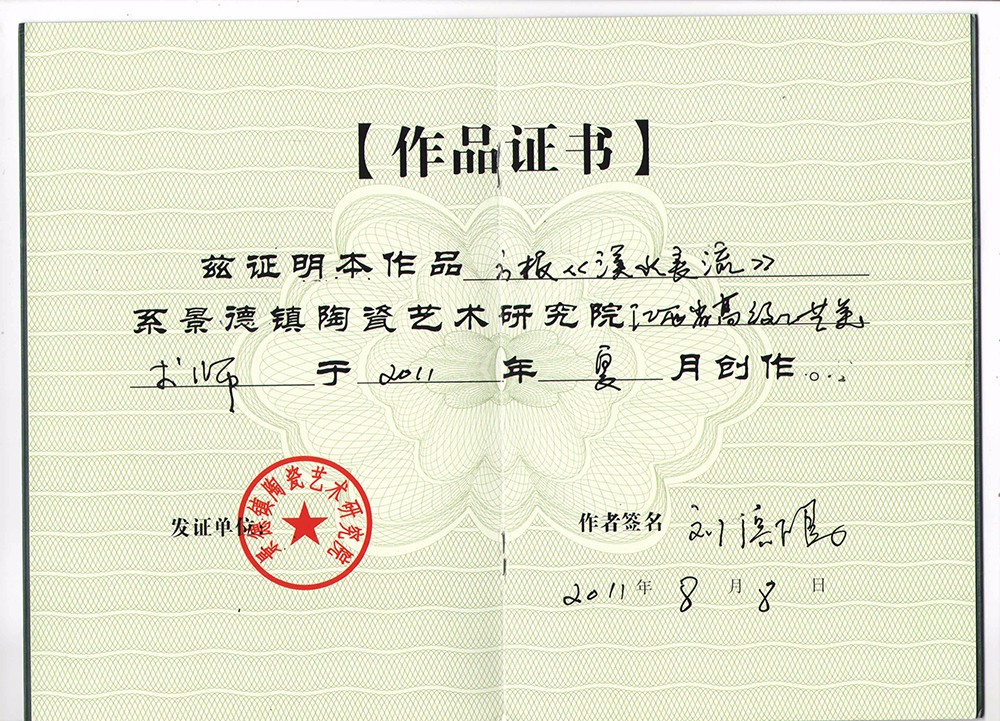 【作品证书】
兹证明本作品 方板《溪水长流》
系景德镇陶瓷艺术研究院江西省高级工艺美
术师 于 2011 年 夏 月创作。
景德镇陶瓷艺术研究院
发证单位:
作者签名 刘
2011 年 8 月 8 日